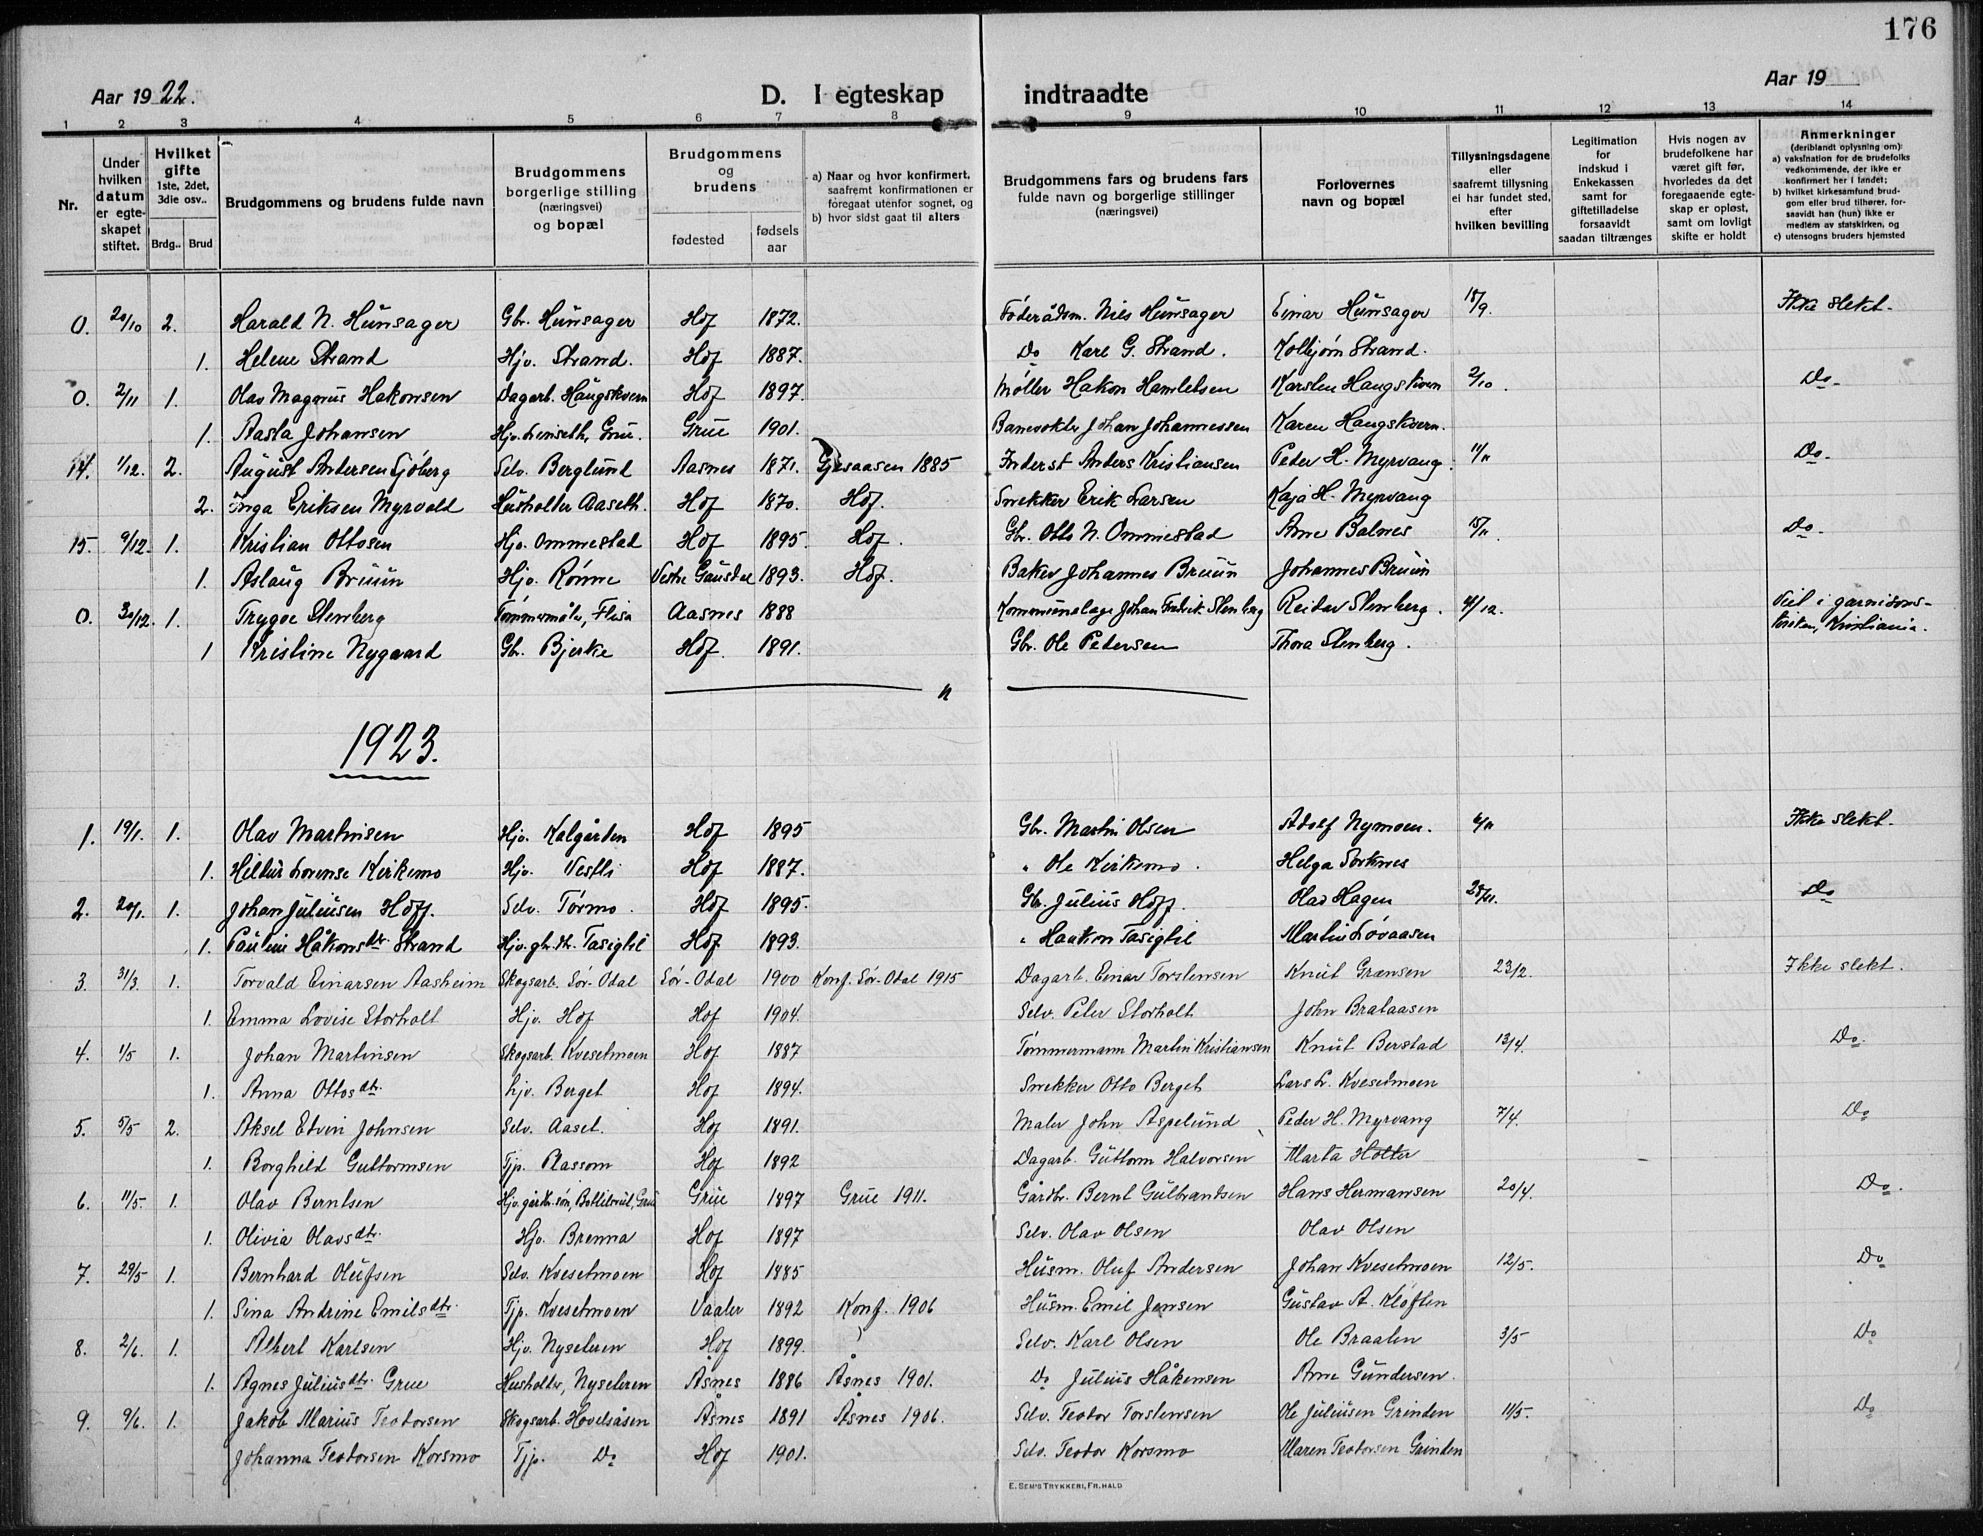 176
Aar 1922.
D. I egteskap indtraadte
Aar 19
1 2 3 4 5 6 7 8 9 10 11 12 13 14
Nr.
Under hvilken datum er egteskapet stiftet.
Hvilket gifte 1ste, 2det, 3die osv..
Brdg.. Brud
Brudgommens og brudens fulde navn
Brudgommens borgerlige stilling (næringsvei) og bopæl
Brudgommens og brudens
fødested
fødsels aar
a) Naar og hvor konfirmert, saafremt konfirmationen er foregaat utenfor sognet, og
b) hvor sidst gaat til alters
Brudgommens fars og brudens fars fulde navn og borgerlige stillinger (næringsvei)
Forlovernes navn og bopæl
Tillysningsdagene eller saafremt tillysning ei har fundet sted, efter hvilken bevilling
Legitimation for indskud i Enkekassen samt for giftetilladelse forsaavidt saadan tiltrænges
Hvis nogen av brudefolkene har været gift før, hvorledes da det foregaaende egteskap er opløst, samt om lovligt skifte er holdt
Anmerkninger (deriblandt oplysning om):
a) vaksination for de brudefolks vedkommende, der ikke er konfirmert her i landet;
b) hvilket kirkesamfund brudgom eller brud tilhører, forsaavidt han (hun) ikke er medlem av statskirken, og
c) utensogns bruders hjemsted
0. 20/10 2. Harald N. Hunsager Gbr. Hunsager Hof 1872. Föderådsm. Nils Hunsager Einar Hunsager 18/9. Ikke slekt.
1. Helene Strand Hjv. Strand. Hof 1887. Do Karl G. Strand. Kolbjørn Strand.
0. 2/11 1. Olav Magnus Hakonsen Dagarb. Haugskvern Hof 1897. Møller Hakon Hamletsen Karsten Haugskvern 2/10. Do.
1. Aasta Johansen Hjv. Grue. Grue 1901. Banevokter Johan Johannessen Karen Haugskvern.
14. 1/12. 2. August Andersen Sjöberg Selv. Berglund Aasnes 1871. Gjesaasen 1885 Inderst Anders Kristiansen Peder H. Myrvang. 11/11 Do.
2. Inga Eriksen Myrvold Husholder Aaseth. Hof 1870. Hof. Snekker Erik Larsen Kaja H. Myrvang
15. 9/12. 1. Kristian Ottosen Hjv. Ommestad Hof 1895. Hof. Gbr. Otto N. Ommestad Arne Balnes 15/11. Do.
1. Aslaug Bruun Hjv. Rönne Vestre Gausdal 1893. Hof. Baker Johannes Bruun Johannes Bruun
0. 30/12. 1. Trygve Stenberg Tømmermåler, Flisa Aasnes 1888 Johan Fredrik Stenberg Reidar Stenberg. 4/12. Viet i garnisons-
kirken, Kristiania.
1 Kristine Nygaard Gbr. Bjerke Hof. 1891. Gbr. Ole Pedersen Thora Stenberg.
1923.
1. 19/1. 1. Olav Martinsen Hjv. Kalgården Hof 1895 Gbr. Martin Olsen Adolf Nymoen. 6/11 Ikke slekt.
1. Hildur Lovense Kirkemo Hjv. Vestli Hof 1887. " Ole Kirkemo. Helga Sorknes
2. 20/1. 1. Johan Juliusen Hoff. Selv. Tørmo. Hof 1895. Gb. Julius Hoff. Olav Hagen 28/11. Do
1. Pauline Håkonsdtr. Strand Hjv. gbr. dtr. Tasigtil Hof 1893. " Haakon Tasigtil Martin Lövaasen
3. 31/3. 1. Torvald Einarsen Aasheim Skogsarb. Sör-Odal Sör-Odal 1900 Konf. Sör-Odal 1915 Dagarb. Einar Torstensen Knut Grænsen 23/2. Ikke slekt.
1. Emma Lovise Storholt Hjv. Hof Hof 1904. Selv. Peter Storholt John Brataasen
4. 1/5 1. Johan Martinsen Skogsarb. Kvesetmoen Hof 1887 Tömmermann Martin Kristiansen Knut Berstad 13/4. Do.
1. Anna Ottosdtr. hjv. Berget Hof 1894. Snekker Otto Berget Lars L. Kvesetmoen
5. 5/5 2. Aksel Edvin Johnsen Selv. Aaset. Hof 1891. Maler John Aspelund Peder H. Myrvang 7/4. Do
1. Borghild Guttormsen Tjp. Plassom Hof 1892 Dagarb. Guttorm Halvorsen Marta Holter
6. 11/5. 1. Olav Berntsen Hjv. gårdbr. sön, Grue Grue 1897 Grue 1911. Gårdbr. Bernt Gulbrandsen Hans Hermansen 20/4. Do.
1. Olivia Olavsdtr. Hjv. Brenna Hof 1897 Selv. Olav Olsen Olav Olsen
7. 29/5 1. Bernhard Olufsen Selv. Kvesetmoen Hof 1885 Husm. Oluf Andersen Johan Kvesetmoen 12/5. Do
1. Sina Andrine Emilsdtr. Tjp. Kvesetmoen Vaaler 1892 Konf. 1906 Husm. Emil Jensen Gustav A. Klöften
8. 2/6. 1. Albert Karlsen Hjv. Nyseteren Hof 1899. Selv. Karl Olsen Ole Braaten 3/5 Do
1. Agnes Juliusdtr. Grue Husholder, Nyseteren Åsnes 1886 Åsnes 1901. Do Julius Håkensen Arne Gundersen.
9. 9/6. 1. Jakob Marius Teodorsen Skogsarb. Hovelsåsen Åsnes 1891 Åsnes 1906. Selv. Teodor Torstensen Ole Juliusen Grinden 11/5. Do
Johanna Teodorsen Korsmo Tjp. Do Hof 1901. Selv. Teodor Korsmo Maren Teodorsen Grinden
E. SEM'S TRYKKERI, FR.HALD